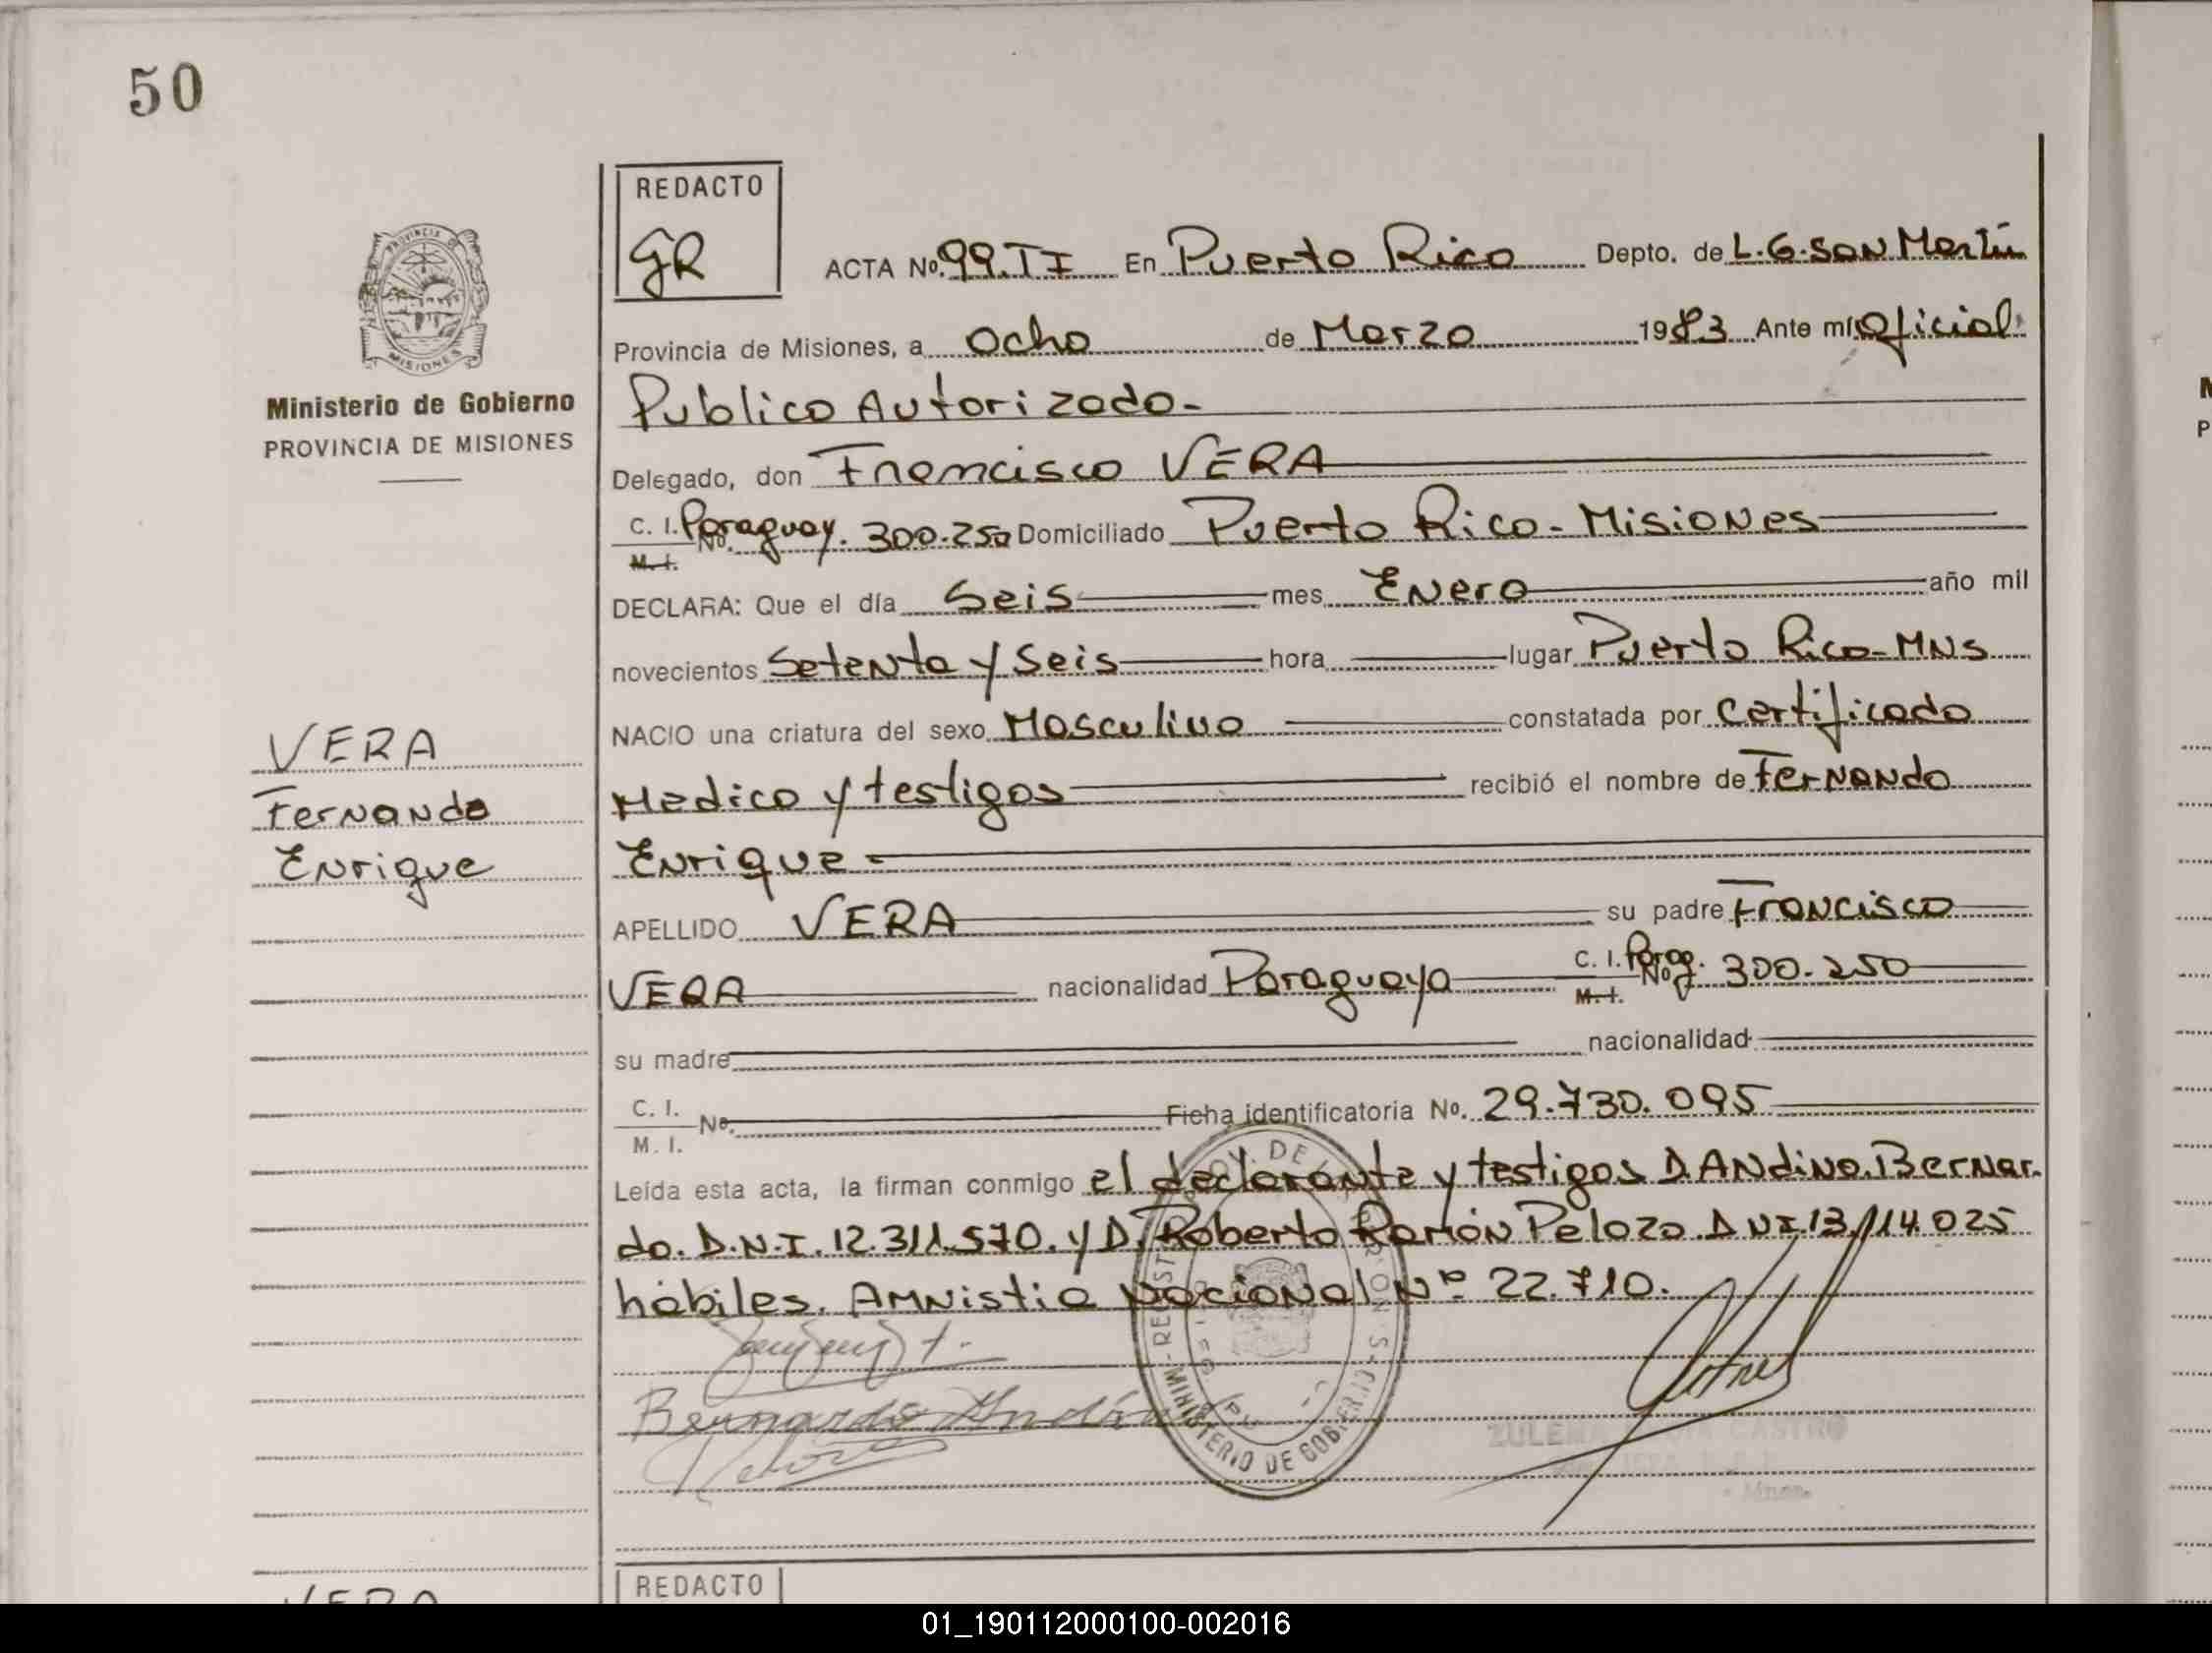 50
REDACTO
GR
ACTA No. 99.TI En Puerto Rico Depto. de L.G. San Martín
Provincia de Misiones, a Ocho de Marzo 1983 Ante mí Oficial
Publico Autorizado-
Delegado, don Francisco VERA
C. I. Paraguay. 300.250 Domiciliado Puerto Rico - Misiones
No.
M. I.
DECLARA: Que el día Seis mes Enero año mil
novecientos Setenta y Seis hora lugar Puerto Rico - MNS
NACIO una criatura del sexo Masculino constatada por Certificado
Medico y testigos recibió el nombre de Fernando
Enrique -
APELLIDO VERA su padre Francisco
VERA nacionalidad Paraguaya C. I. Parag. 300.250
No
M. I.
su madre nacionalidad
C. I.
M. I. No. Ficha identificatoria No. 29.730.095
Leída esta acta, la firman conmigo el declarante y testigos D. Andino. Bernar.
do. D.N.I. 12.311.570. y D. Roberto Ramón Pelozo. DNI.13.114.025
hábiles. Amnistia Nacional Nº 22.710.
Bernardo Andino
MINISTERIO DE GOBIERNO
CASTRO
PROVINCIA DE
MISIONES
Ministerio de Gobierno
PROVINCIA DE MISIONES
VERA
Fernando
Enrique
VERA
REDACTO
01_190112000100-002016